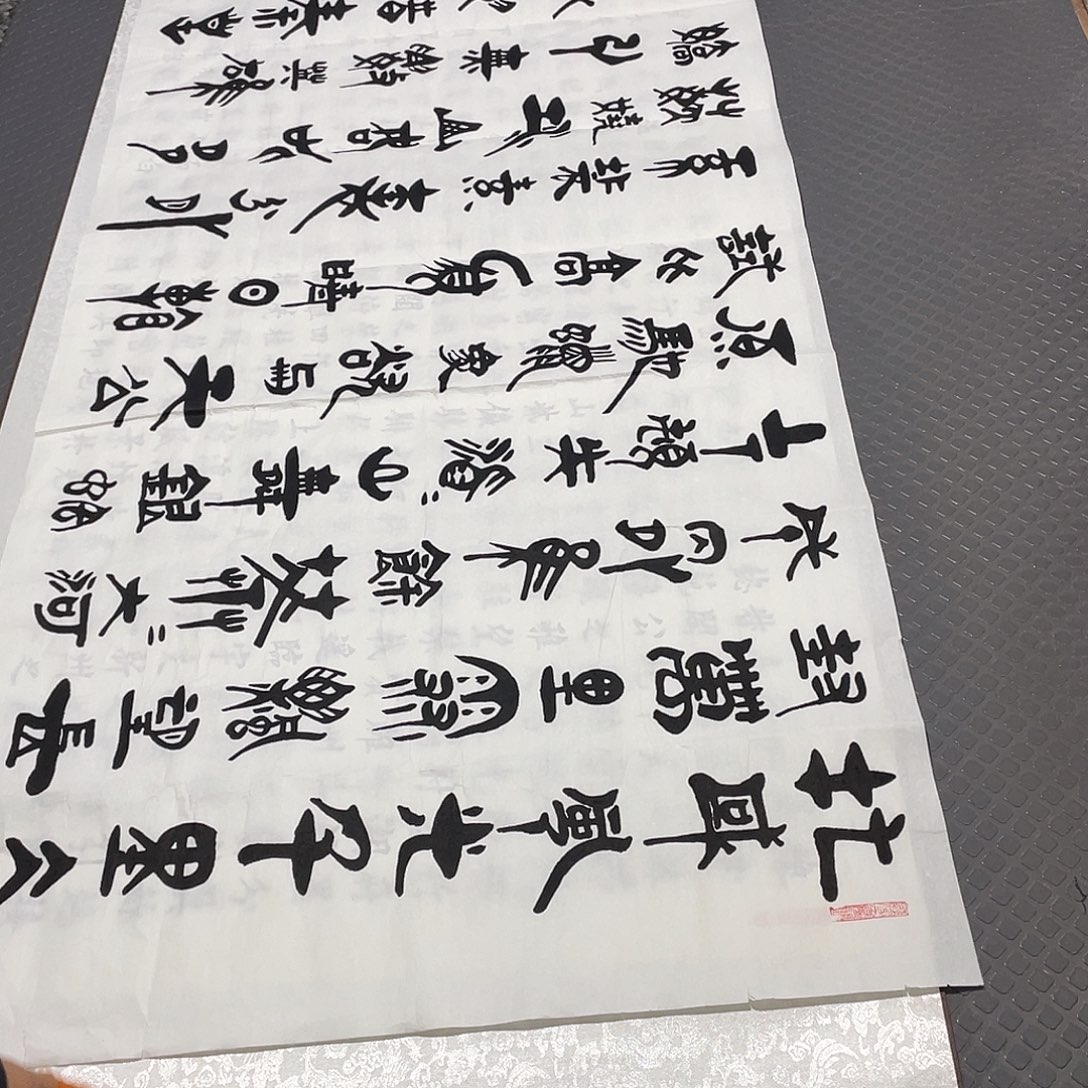 北國風光千里冰
封萬里雪飄望長
城內外隹餘莽〻大河
上下頓失滔〻山舞銀蛇
原馳蠟象欲與天公
試比高須晴日看
紅裝素裹分外
妖嬈江山如此多
嬌引無數英雄
惜秦皇